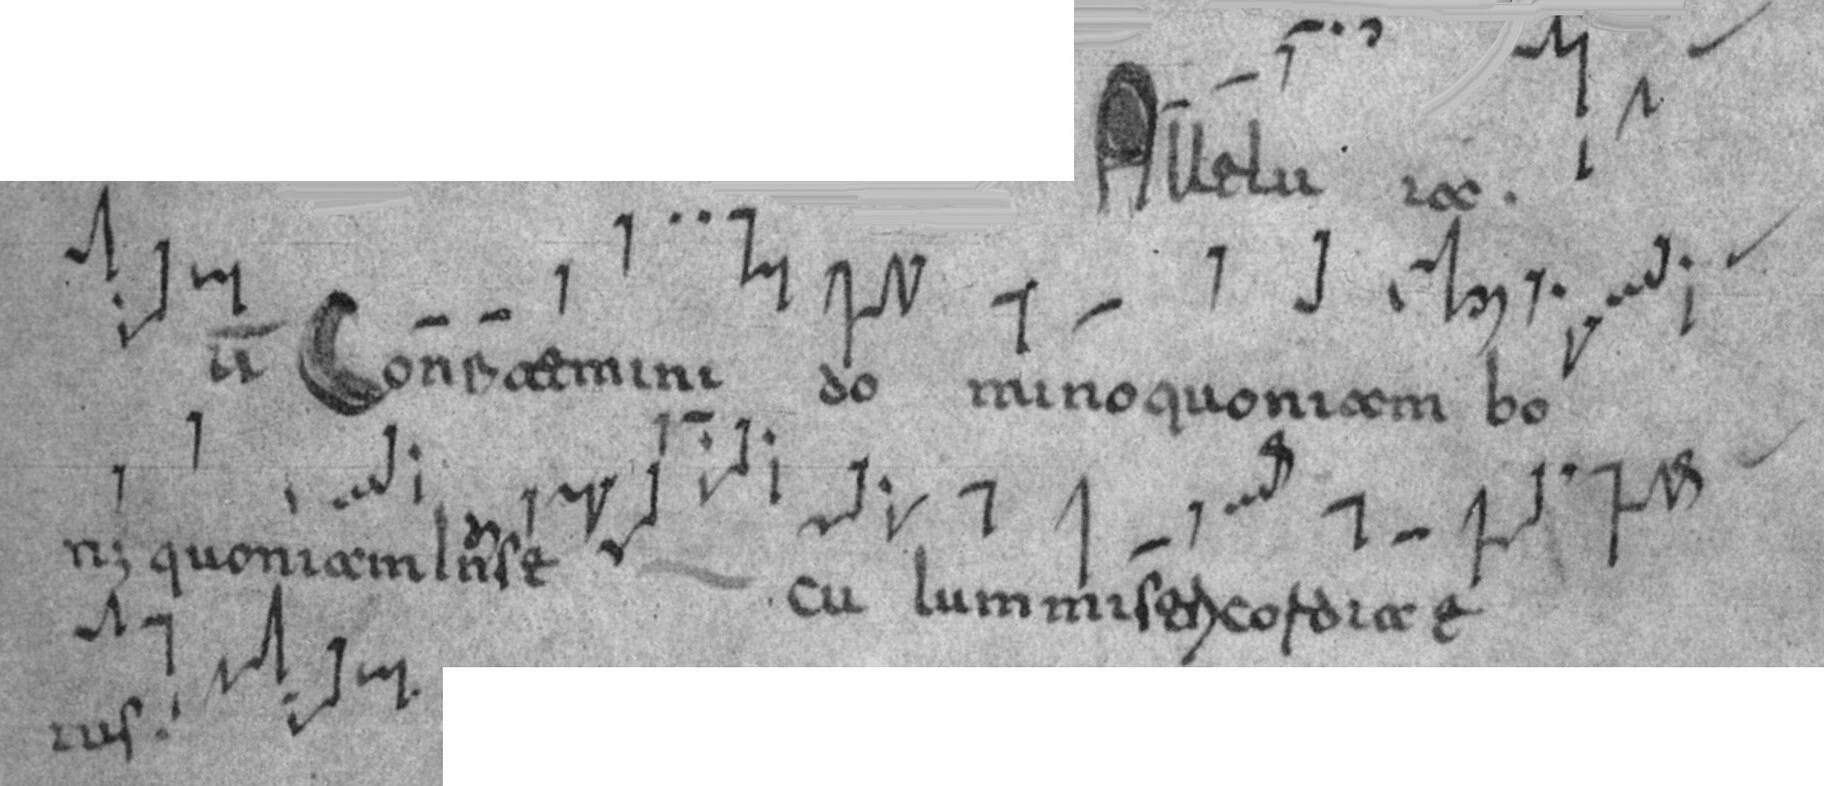 Allelu ia.
v Confitemini do mino quoniam bo
n; quoniam In se
cu lum misericordia e
ius.